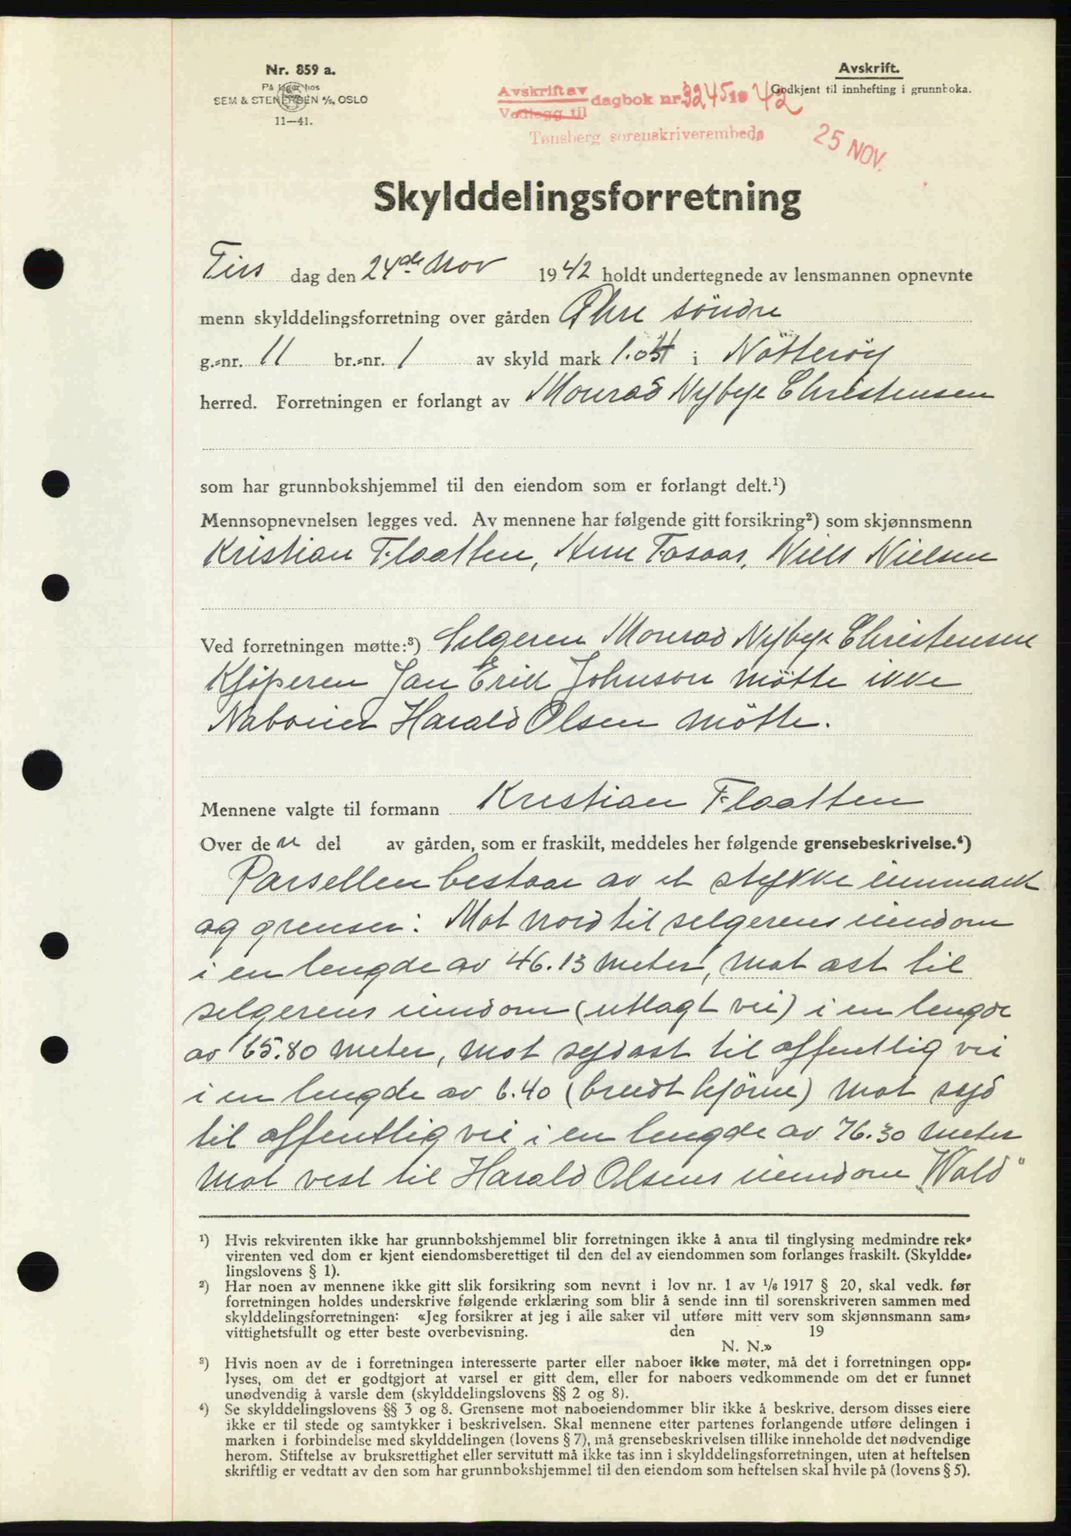 Nr. 859 a.
På lager hos
SEM & STENERSEN A/S, OSLO
11—41.
Avskrift.
Godkjent til innhefting i grunnboka.
Avskrift av
Vedlegg til
dagbok nr. 3245 19 42
Tønsberg sorenskriverembede
25 NOV.
Skylddelingsforretning
Tirs dag den 24de Nov 1942 holdt undertegnede av lensmannen opnevnte
menn skylddelingsforretning over gården Øhre söndre
g.-nr. 11 br.-nr. 1 av skyld mark i Nötteröy
herred. Forretningen er forlangt av Monrad Nybye Christensen
som har grunnbokshjemmel til den eiendom som er forlangt delt.¹)
Mennsopnevnelsen legges ved. Av mennene har følgende gitt forsikring²) som skjønnsmenn
Kristian Flaatten, Niels Nielsen
Ved forretningen møtte:³) Selgeren Monrad Nybye Christensen
Kjöperen Jan Erik Johnson mötte ikke
Naboen Harald Olsen mötte.
Mennene valgte til formann Kristian Flaatten
Over den del av gården, som er fraskilt, meddeles her følgende grensebeskrivelse.⁴)
Parsellen bestaar av et stykke innmark
og grenser: Mot nord til selgerens eiendom
i en lengde av 46.13 meter, mot øst til
selgerens eiendom (utlagt vei) i en lengde
av 65.80 meter, mot sydøst til offentlig vei
i en lengde av 6.40 (brudt hjörne) mot syd
til offentlig vei i en lengde av 76.30 meter
mot vest til Harald Olsens eiendom „Wold"
¹) Hvis rekvirenten ikke har grunnbokshjemmel blir forretningen ikke å anta til tinglysing medmindre rek-
virenten ved dom er kjent eiendomsberettiget til den del av eiendommen som forlanges fraskilt. (Skyldde-
lingslovens § 1).
²) Har noen av mennene ikke gitt slik forsikring som nevnt i lov nr. 1 av 1/6 1917 § 20, skal vedk. før
forretningen holdes underskrive følgende erklæring som blir å sende inn til sorenskriveren sammen med
skylddelingsforretningen: «Jeg forsikrer at jeg i alle saker vil utføre mitt verv som skjønnsmann sam-
vittighetsfullt og etter beste overbevisning. den 19
N. N.»
³) Hvis noen av de i forretningen interesserte parter eller naboer ikke møter, må det i forretningen opp-
lyses, om det er godtgjort at varsel er gitt dem, eller for naboers vedkommende om det er funnet
unødvendig å varsle dem (skylddelingslovens §§ 2 og 8).
⁴) Se skylddelingslovens §§ 3 og 8. Grensene mot naboeiendommer blir ikke å beskrive, dersom disses eiere
ikke er til stede og samtykker i beskrivelsen. Skal mennene etter partenes forlangende utføre delingen i
marken i forbindelse med skylddelingen (lovens § 7), må grensebeskrivelsen tillike inneholde det nødvendige
herom. Stiftelse av bruksrettighet eller servitutt må ikke tas inn i skylddelingsforretningen, uten at heftelsen
skriftlig er vedtatt av den som har grunnbokshjemmel til den eiendom som heftelsen skal hvile på (lovens § 5).